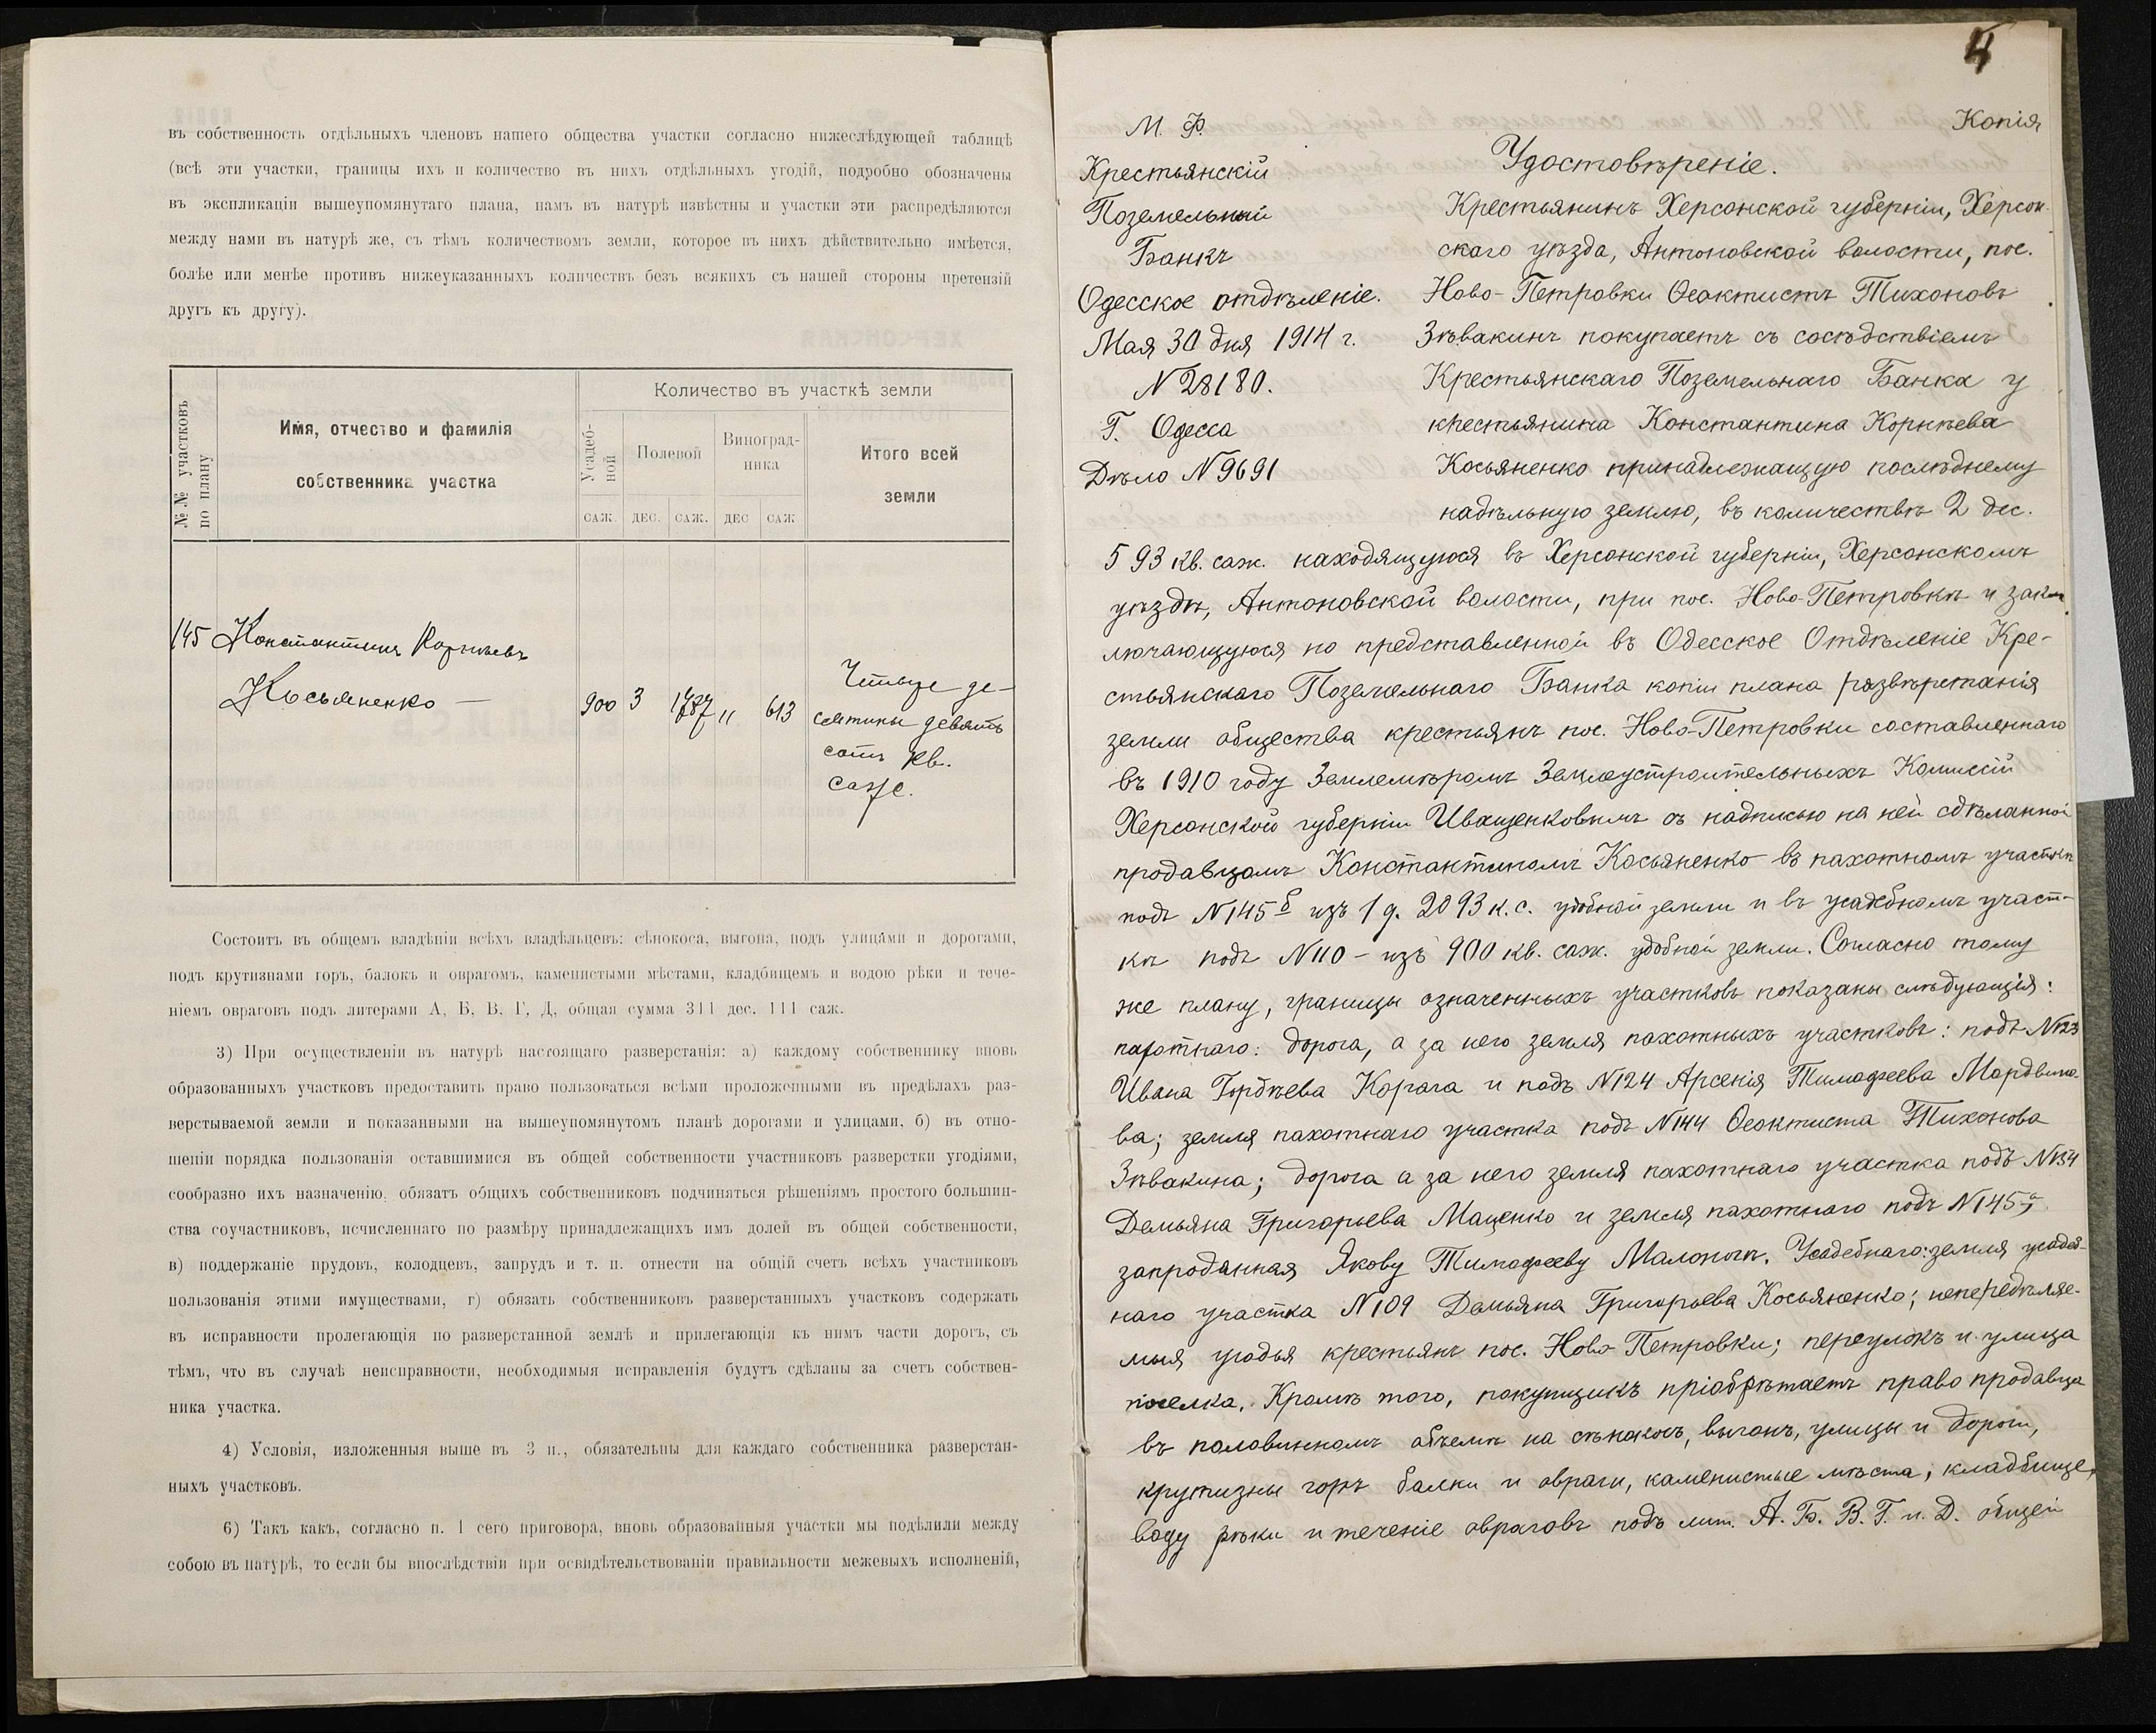 въ собственность отдѣльныхъ членовъ нашего общества участки согласно нижеслѣдующей таблицѣ
(всѣ эти участки, границы ихъ и количество въ нихъ отдѣльныхъ угодій, подробно обозначены
въ экспликаціи вышеупомянутаго плана, намъ въ натурѣ извѣстны и участки эти распредѣляются
между нами въ натурѣ же, съ тѣмъ количествомъ земли, которое въ нихъ дѣйствительно имѣется,
болѣе или менѣе противъ нижеуказанныхъ количествъ безъ всякихъ съ нашей стороны претензій
другъ къ другу).
№№ участковъ по плану
Имя, отчество и фамилія
собственника участка
Количество въ участкѣ земли
Усадеб-
ной
Полевой
Виноград-
ника
Итого всей
земли
САЖ. ДЕС. САЖ. ДЕС САЖ
145 Константинъ Корнѣевъ
Косьяненко —
900 3 1787 " 613
Четыре де-
сятины девять
сотъ кв.
саж.
Состоитъ въ общемъ владѣніи всѣхъ владѣльцевъ: сѣнокоса, выгона, подъ улицами и дорогами,
подъ крутизнами горъ, балокъ и оврагомъ, каменистыми мѣстами, кладбищемъ и водою рѣки и тече-
ніемъ овраговъ подъ литерами А, Б, В, Г, Д, общая сумма 311 дес. 111 саж.
3) При осуществленіи въ натурѣ настоящаго разверстанія: а) каждому собственнику вновь
образованныхъ участковъ предоставить право пользоваться всѣми проложенными въ предѣлахъ раз-
верстываемой земли и показанными на вышеупомянутомъ планѣ дорогами и улицами, б) въ отно-
шеніи порядка пользованія оставшимися въ общей собственности участниковъ разверстки угодіями,
сообразно ихъ назначенію, обязать общихъ собственниковъ подчиняться рѣшеніямъ простого большин-
ства соучастниковъ, исчисленнаго по размѣру принадлежащихъ имъ долей въ общей собственности,
в) поддержаніе прудовъ, колодцевъ, запрудъ и т. п. отнести на общій счетъ всѣхъ участниковъ
пользованія этими имуществами, г) обязать собственниковъ разверстанныхъ участковъ содержать
въ исправности пролегающія по разверстанной землѣ и прилегающія къ нимъ части дорогъ, съ
тѣмъ, что въ случаѣ неисправности, необходимыя исправленія будутъ сдѣланы за счетъ собствен-
ника участка.
4) Условія, изложенныя выше въ 3 п., обязательны для каждаго собственника разверстан-
ныхъ участковъ.
6) Такъ какъ, согласно п. 1 сего приговора, вновь образованныя участки мы подѣлили между
собою въ натурѣ, то если бы впослѣдствіи при освидѣтельствованіи правильности межевыхъ исполненій,
4
М. Ф.
Крестьянскій
Поземельный
Банкъ
Одесское отдѣленіе.
Мая 30 дня 1914 г.
N 28180.
Г. Одесса
Дѣло N 9691
Копія
Удостовѣреніе.
Крестьянинъ Херсонской губерніи, Херсон-
скаго уѣзда, Антоновской волости, пос.
Ново-Петровки Ѳеактистъ Тихоновъ
Зѣвакинъ покупаетъ съ сосѣдствіемъ
Крестьянскаго Поземельнаго Банка у
крестьянина Константина Корнѣева
Косьяненко принадлежащую послѣднему
надѣльную землю, въ количествѣ 2 дес.
593 кв. саж. находящуюся въ Херсонской губерніи, Херсонскомъ
уѣздѣ, Антоновской волости, при пос. Ново-Петровкѣ и зак-
лючающуюся по представленной въ Одесское Отдѣленіе Кре-
стьянскаго Поземельнаго Банка копіи плана развѣрстанія
земли общества крестьянъ пос. Ново-Петровки составленнаго
въ 1910 году Землемѣромъ Землеустроительныхъ Комиссій
Херсонской губерніи Иващенковымъ съ надписью на ней сдѣланной
продавцомъ Константиномъ Косьяненко въ пахотномъ участкѣ
подъ N 145 б изъ 1 д. 2093 к. с. удобной земли и въ усадебномъ участ-
кѣ подъ N 110 – изъ 900 кв. саж. удобной земли. Согласно тому
же плану, границы означенныхъ участковъ показаны слѣдующія:
пахотнаго: дорога, а за него земля пахотныхъ участковъ: подъ N 123
Ивана Гордѣева Корага и подъ N 124 Арсенія Тимофеева Мордвино-
ва; земля пахотнаго участка подъ N 144 Ѳеоктиста Тихонова
Зѣвакина; дорога а за него земля пахотнаго участка подъ N 134
Демьяна Григорьева Маценко и земля пахотнаго подъ N 145 а,
запроданная Якову Тимофееву Усадебнаго: земля усадеб-
наго участка N 109 Демьяна Григорьева Косьяненко; непередѣляе-
мыя угодья крестьянъ пос. Ново-Петровки; переулокъ и улица
поселка. Кромѣ того, покупщикъ пріобрѣтаетъ право продавца
въ половинномъ объемѣ на сѣнокосъ, выгонъ, улицы и дороги,
крутизны горъ балки и овраги, каменистые мѣста, кладбище,
воду рѣки и теченіе овраговъ подъ лит. А. Б. В. Г. и Д. общей